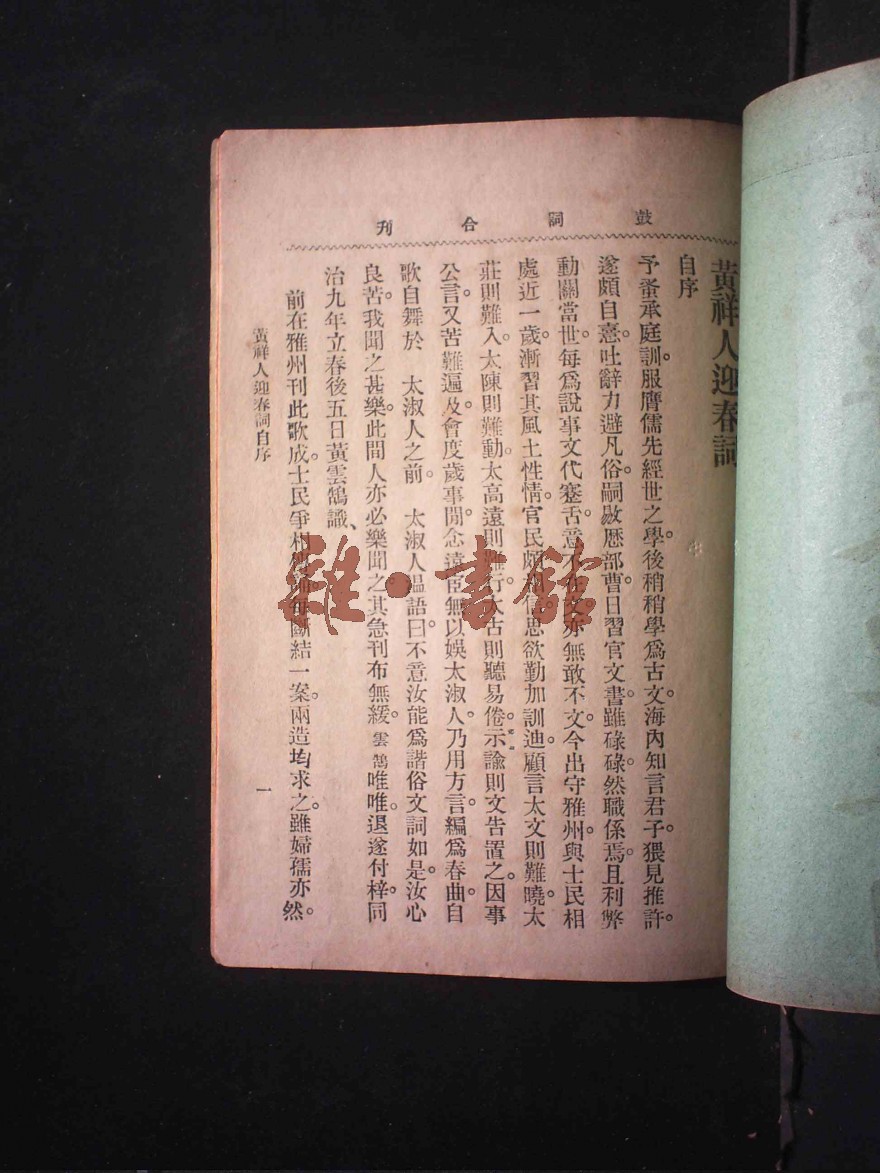 鼓詞合刊
黃祥人迎春詞
自序
予蚤承庭訓。服膺儒先經世之學。後稍稍學爲古文。海內知言君子。猥見推許。
遂頗自憙。吐辭力避凡俗。嗣敭歷部曹。日習官文書。雖碌碌。然職係焉。且利弊
動關當世。每爲說事文代蹇舌。意不在文。亦無敢不文。今出守雅州。與士民相
處近一歲。漸習其風土性情。官民頗相信。思欲勤加訓迪。顧言太文則難曉。太
莊則難入。太陳則難動。太高遠則難行。太古則聽易倦。示諭則文告置之。因事
公言。又苦難遍。及會度歲事閒。念遠臣無以娛太淑人。乃用方言。編爲春曲。自
歌自舞於 太淑人之前。 太淑人溫語曰。不意汝能爲諧俗文詞如是。汝心
良苦。我聞之甚樂。此間人亦必樂聞之。其急刊布無緩。雲鵠唯唯。退遂付梓。同
治九年立春後五日黃雲鵠識、
前在雅州刊此歌成。士民爭相 每斷結一案。兩造均求之。雖婦孺亦然。
黃祥人迎春詞自序
一
雜·書館